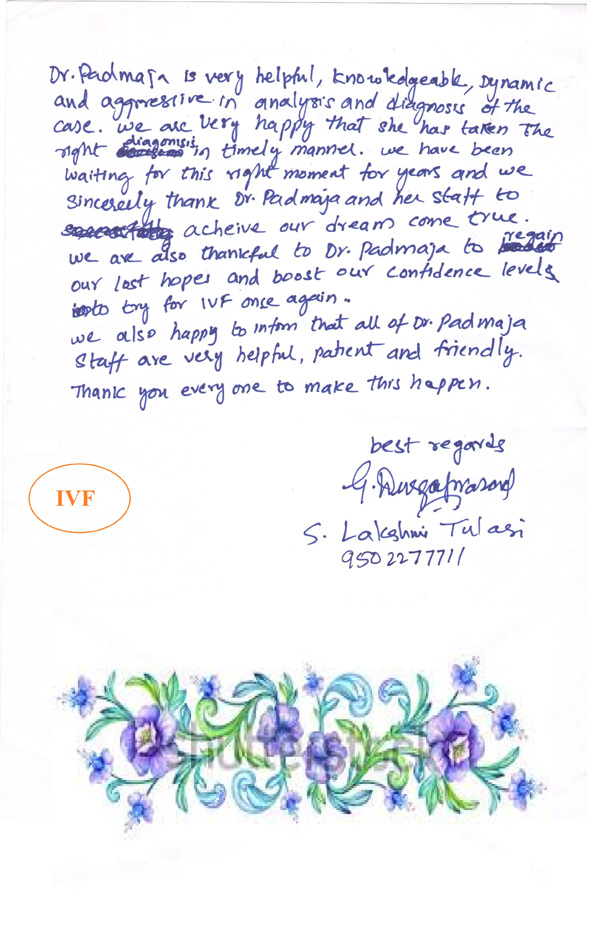 Dr. Padmaja is very helpful, Knowledgeable, Dynamic
and aggressive in analysis and diagnosis of the
case. we are very happy that she has taken the
right diagonisis in timely manner. we have been
waiting for this right moment for years and we
Sincerely thank Dr. Padmaja and her staff to
acheive our dream come true.
we are also thankful to Dr. Padmaja to regain
our lost hopes and boost our confidence levels
to try for IVF once again.
we also happy to inform that all of Dr. Padmaja
Staff are very helpful, patient and friendly.
Thank you every one to make this happen.
best regards
G. Durgaprasad
IVF
S. Lakshmi Tulasi
9502277711
shutterstock